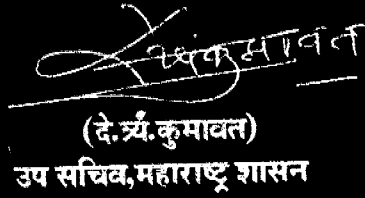 (दे.त्र्यं.कुमावत)
उप सचिव,महाराष्ट्र शासन